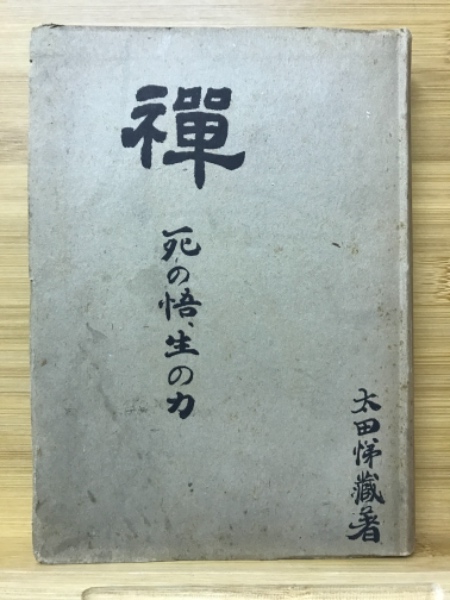 禪
死の悟、生の力
太田悌藏著